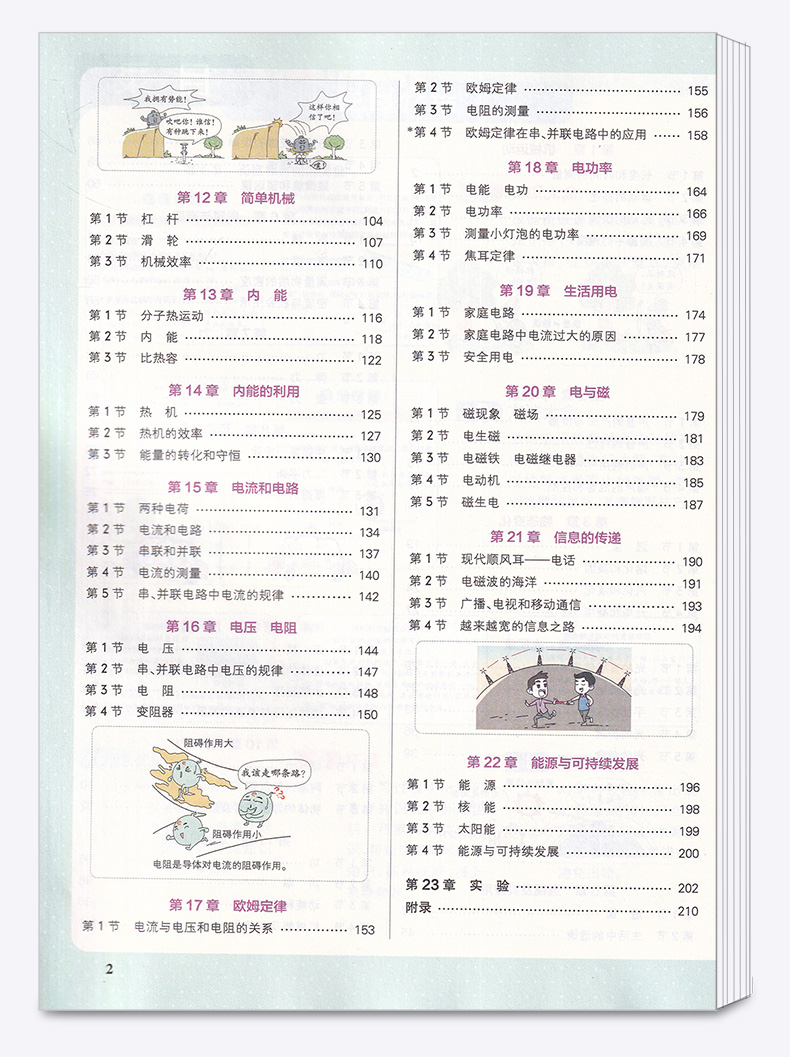 我拥有势能！
吹吧你！谁信！
有种跳下来！
这样你相
信了吧！
第12章 简单机械
第1节 杠 杆 104
第2节 滑 轮 107
第3节 机械效率 110
第13章 内 能
第1节 分子热运动 116
第2节 内 能 118
第3节 比热容 122
第14章 内能的利用
第1节 热 机 125
第2节 热机的效率 127
第3节 能量的转化和守恒 130
第15章 电流和电路
第1节 两种电荷 131
第2节 电流和电路 134
第3节 串联和并联 137
第4节 电流的测量 140
第5节 串、并联电路中电流的规律 142
第16章 电压 电阻
第1节 电 压 144
第2节 串、并联电路中电压的规律 147
第3节 电 阻 148
第4节 变阻器 150
阻碍作用大
我该走哪条路？
阻碍作用小
电阻是导体对电流的阻碍作用。
第17章 欧姆定律
第1节 电流与电压和电阻的关系 153
第2节 欧姆定律 155
第3节 电阻的测量 156
*第4节 欧姆定律在串、并联电路中的应用 158
第18章 电功率
第1节 电能 电功 164
第2节 电功率 166
第3节 测量小灯泡的电功率 169
第4节 焦耳定律 171
第19章 生活用电
第1节 家庭电路 174
第2节 家庭电路中电流过大的原因 177
第3节 安全用电 178
第20章 电与磁
第1节 磁现象 磁场 179
第2节 电生磁 181
第3节 电磁铁 电磁继电器 183
第4节 电动机 185
第5节 磁生电 187
第21章 信息的传递
第1节 现代顺风耳——电话 190
第2节 电磁波的海洋 191
第3节 广播、电视和移动通信 193
第4节 越来越宽的信息之路 194
第22章 能源与可持续发展
第1节 能 源 196
第2节 核 能 198
第3节 太阳能 199
第4节 能源与可持续发展 200
第23章 实 验 202
附录 210
2